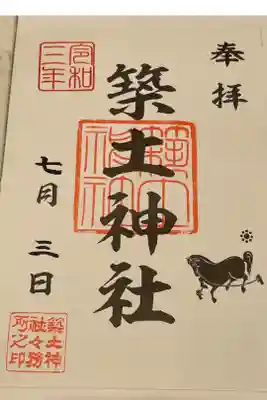 奉拝
築土神社
築土神社
令和三年
七月三日
築土神
社々務
所之印